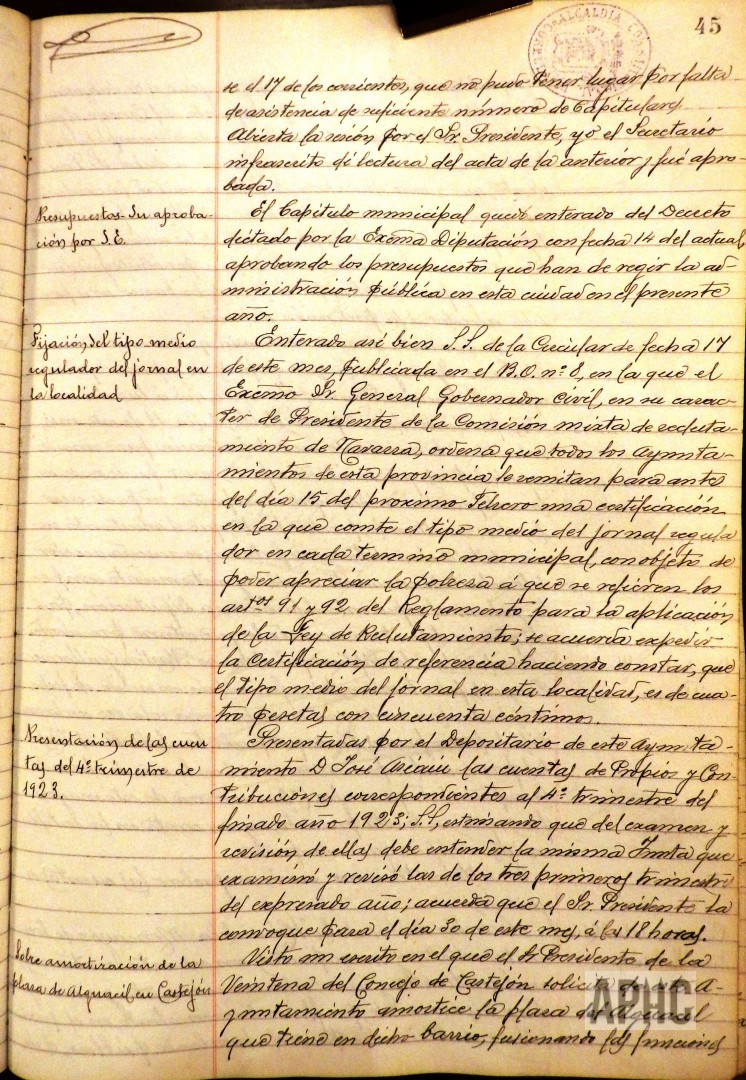 45
se el 17 de los corrientes, que no pudo tener lugar por falta
de asistencia de suficiente número de Capitulares
Abierta la sesión por el Sr. Presidente, yo el Secretario
infrascrito di lectura del acta de la anterior y fué apro-
bada.
Presupuestos-Su aproba-
ción por S.E.
El Capítulo municipal quedó enterado del Decreto
dictado por la Excma Diputación con fecha 14 del actual
aprobando los presupuestos que han de regir la ad-
ministración pública en esta ciudad en el presente
año.
Fijación del tipo medio
regulador del jornal en
la localidad
Enterado así bien S.S. de la Circular de fecha 17
de este mes, publicada en el B.O. nº 8, en la que el
Excmo Sr. General Gobernador Civil, en su carac-
ter de Presidente de la Comisión mixta de recluta-
miento de Navarra, ordena que todos los Ayunta-
mientos de esta provincia le remitan para antes
del día 15 del proximo Febrero una certificación
en la que conste el tipo medio del jornal regula
dor en cada termino municipal, con objeto de
poder apreciar la pobreza á que se refieren los
artos 91 y 92 del Reglamento para la aplicación
de la Ley de Reclutamiento; se acuerda expedir
la certificación de referencia haciendo constar, que
el tipo medio del jornal en esta localidad, es de cua-
tro pesetas con cincuenta céntimos.
Presentación de las cuen
tas del 4º trimestre de
1923.
Presentadas por el Depositario de este Ayunta-
miento D José las cuentas de Propios y Con-
tribuciones correspondientes al 4º trimestre del
finado año 1923; S.S, estimando que del examen y
revisión de ellas debe entender la misma Junta que
examinó y revisó las de los tres primeros trimestres
del expresado año; acuerda que el Sr. Presidente la
convoque para el día 30 de este mes, á las 18 horas.
Sobre amortización de la
plaza de Alguacil en Castejón
Visto un escrito en el que el Sr Presidente de la
Veintena del Concejo de Castejón solicita
yuntamiento amortice la plaza de Alguacil
que tiene en dicho barrio, fusionando las funciones
ARHC